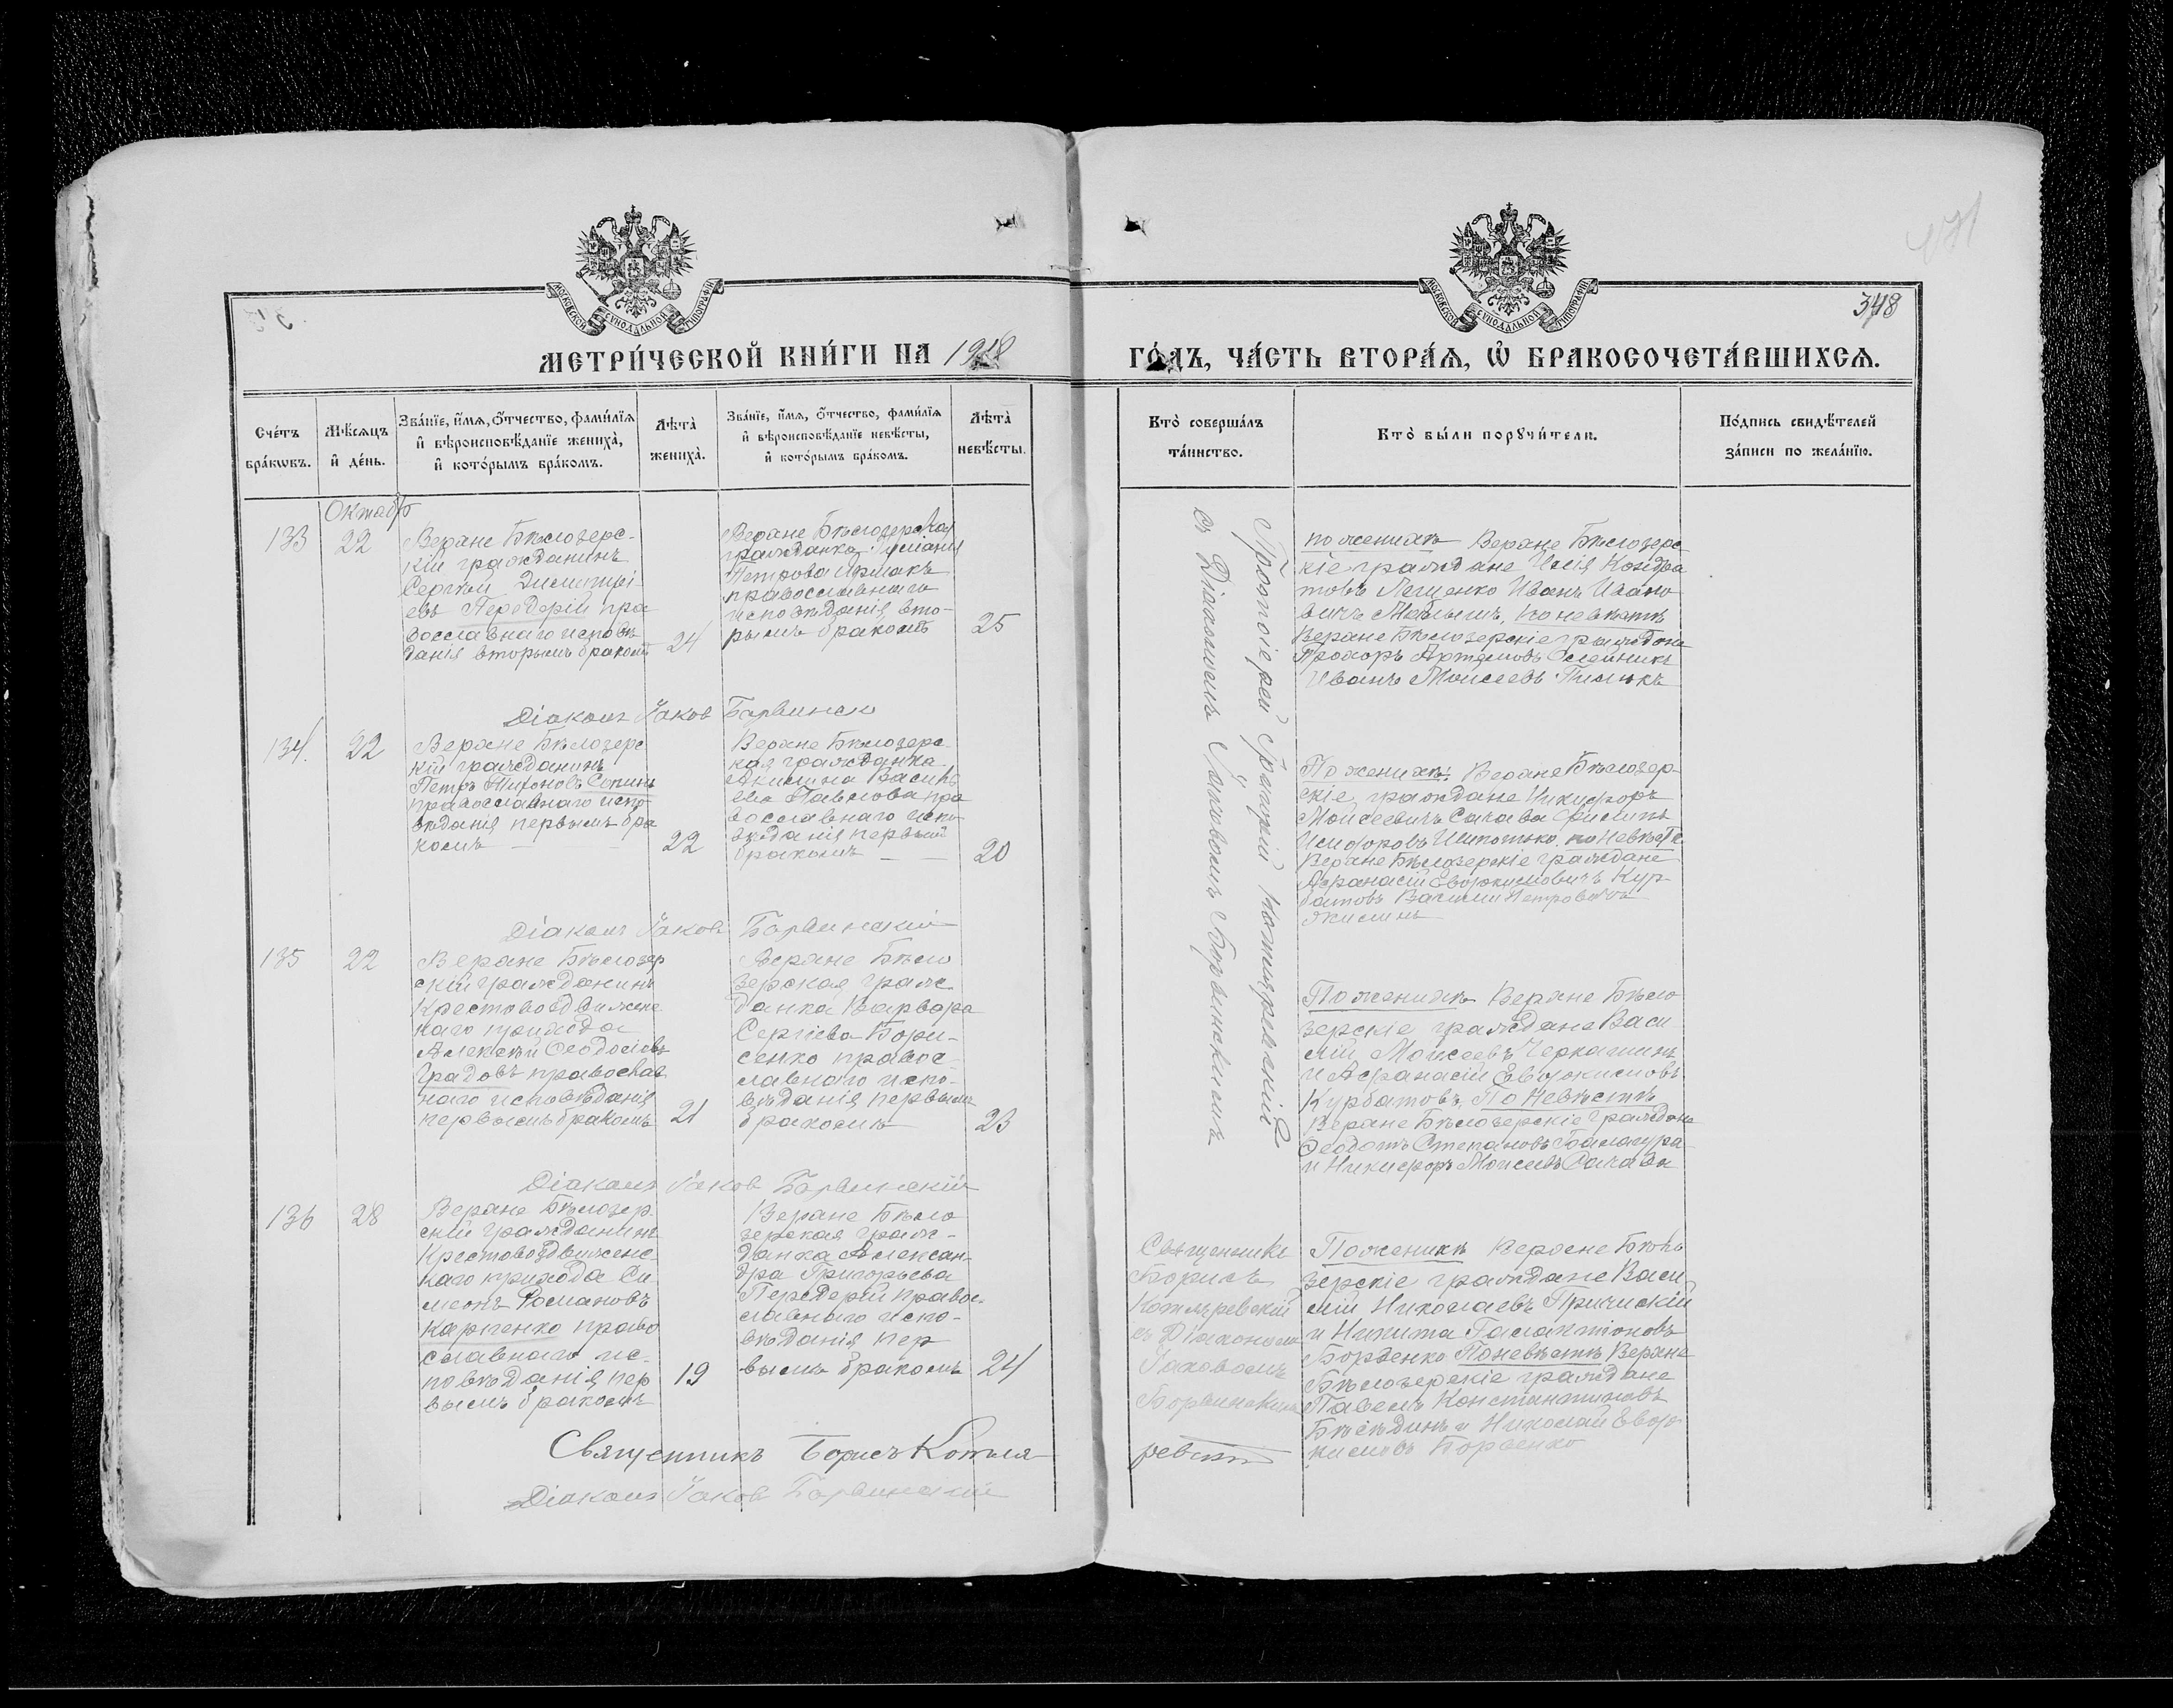 348
МОСКОВСКОЙ СѴНОДАЛЬНОЙ ТИПОГРАФІИ
МОСКОВСКОЙ СѴНОДАЛЬНОЙ ТИПОГРАФІИ
МЕТРИ́ЧЕСКОЙ КНИ́ГИ НА 1918
ГО́ДЪ, ЧА́СТЬ ВТОРА́Я, Ѡ҆ БРАКОСОЧЕТА́ВШИХСЯ.
Сче́тъ бра́кѡвъ.
Мѣ́сяцъ и҆ де́нь.
Зва́нїе, и҆́мя, ѻ҆́тчество, фами́лїя
и҆ вѣроисповѣ́данїе жениха̀,
и҆ кото́рымъ бра́комъ.
Лѣ́та̀ жениха̀.
Зва́нїе, и҆́мя, ѻ҆́тчество, фами́лїя
и҆ вѣроисповѣ́данїе невѣ́сты,
и҆ кото́рымъ бра́комъ.
Лѣ́та̀ невѣ́сты.
Кто̀ соверша́лъ та́инство.
Кто̀ бы́ли порꙋчи́тели.
По́дпись свидѣ́телей
за́писи по жела́нїю.
Октябр
133
22
Веряне Бѣлозерс-
кій гражданинъ
Сергѣй
евъ Передерій пра
вославнаго исповѣ
данія вторымъ бракомъ
24
Веряне Бѣлозерская
гражданка
Петрова Ярмакъ
православнаго
исповѣданія, вто-
рымъ бракомъ
25
Протоіерей Григорій
съ Діакономъ Іаковомъ Барвинскимъ
по женихѣ Веряне Бѣлозерс
кіе граждане Илія Кондра
товъ Лещенко Иванъ Ивано
вичъ по невѣстѣ
Веряне Бѣлозерскіе граждане
Прохоръ Артемовъ Олейникъ
Иванъ Моисеевъ
Діаконъ Іаков Барвинск
134.
22
Веряне Бѣлозерс
кій гражданинъ
Петръ Тихоновъ
православнаго испо
вѣданія первымъ бра
комъ
22
Веряне Бѣлозерс
кая гражданка
Акилина Василь
ева Павлова пра
вославнаго испо
вѣданія первымъ
бракомъ
20
По женихѣ: Веряне Бѣлозер-
скіе граждане Никифоръ
Моисеевичъ Салава Филиппъ
по невѣстѣ
Веряне Бѣлозерскіе граждане
Афанасій Евфимовичъ Кур-
батовъ Василій Петровичъ
Діаконъ Іаков Барвинскій
135
22
Веряне Бѣлозер
скій гражданинъ
Крестовоздвижене
каго прихода
Алексѣй Ѳеодосіевъ
Градовъ православ
наго исповѣданія
первымъ бракомъ
21
Веряне Бѣло
зерская граж
данка Варвара
Сергіева Бори-
сенко правос
лавнаго испо-
вѣданія первымъ
бракомъ
23
По женихѣ Веряне Бѣло
зерскіе граждане Васи
лій Моисеевъ Черкашинъ
и Афанасій Евфимовъ
Курбатовъ, По невѣстѣ
Веряне Бѣлозерскіе граждане
Ѳеодотъ Степановъ Балагура
и Никифоръ Моисеевъ Салава
Діаконъ Іаков Барвинскій
136
28
Веряне Бѣлозер
скій гражданинъ
Крестовоздвиженс
каго прихода Си
меонъ Романовъ
Карпенко право
славнаго ис-
повѣданія пер
вымъ бракомъ
19
Веряне Бѣло
зерская граж-
данка Алексан-
дра Григорьева
Передерій правос-
лавнаго испо-
вѣданія пер
вымъ бракомъ
24
Священникъ
Борисъ
Котляревскій
съ Діакономъ
Іаковомъ
Барвинскимъ
По женихѣ Веряне Бѣло
зерскіе граждане Васи
лій Николаевъ
и Никита Галактіоновъ
Борзенко По невѣстѣ Веряне
Бѣлозерскіе граждане
Павелъ Константиновъ
и Николай
Борзенко
Священникъ Борисъ Котля
ревскій
Діаконъ Іаков Барвинскій